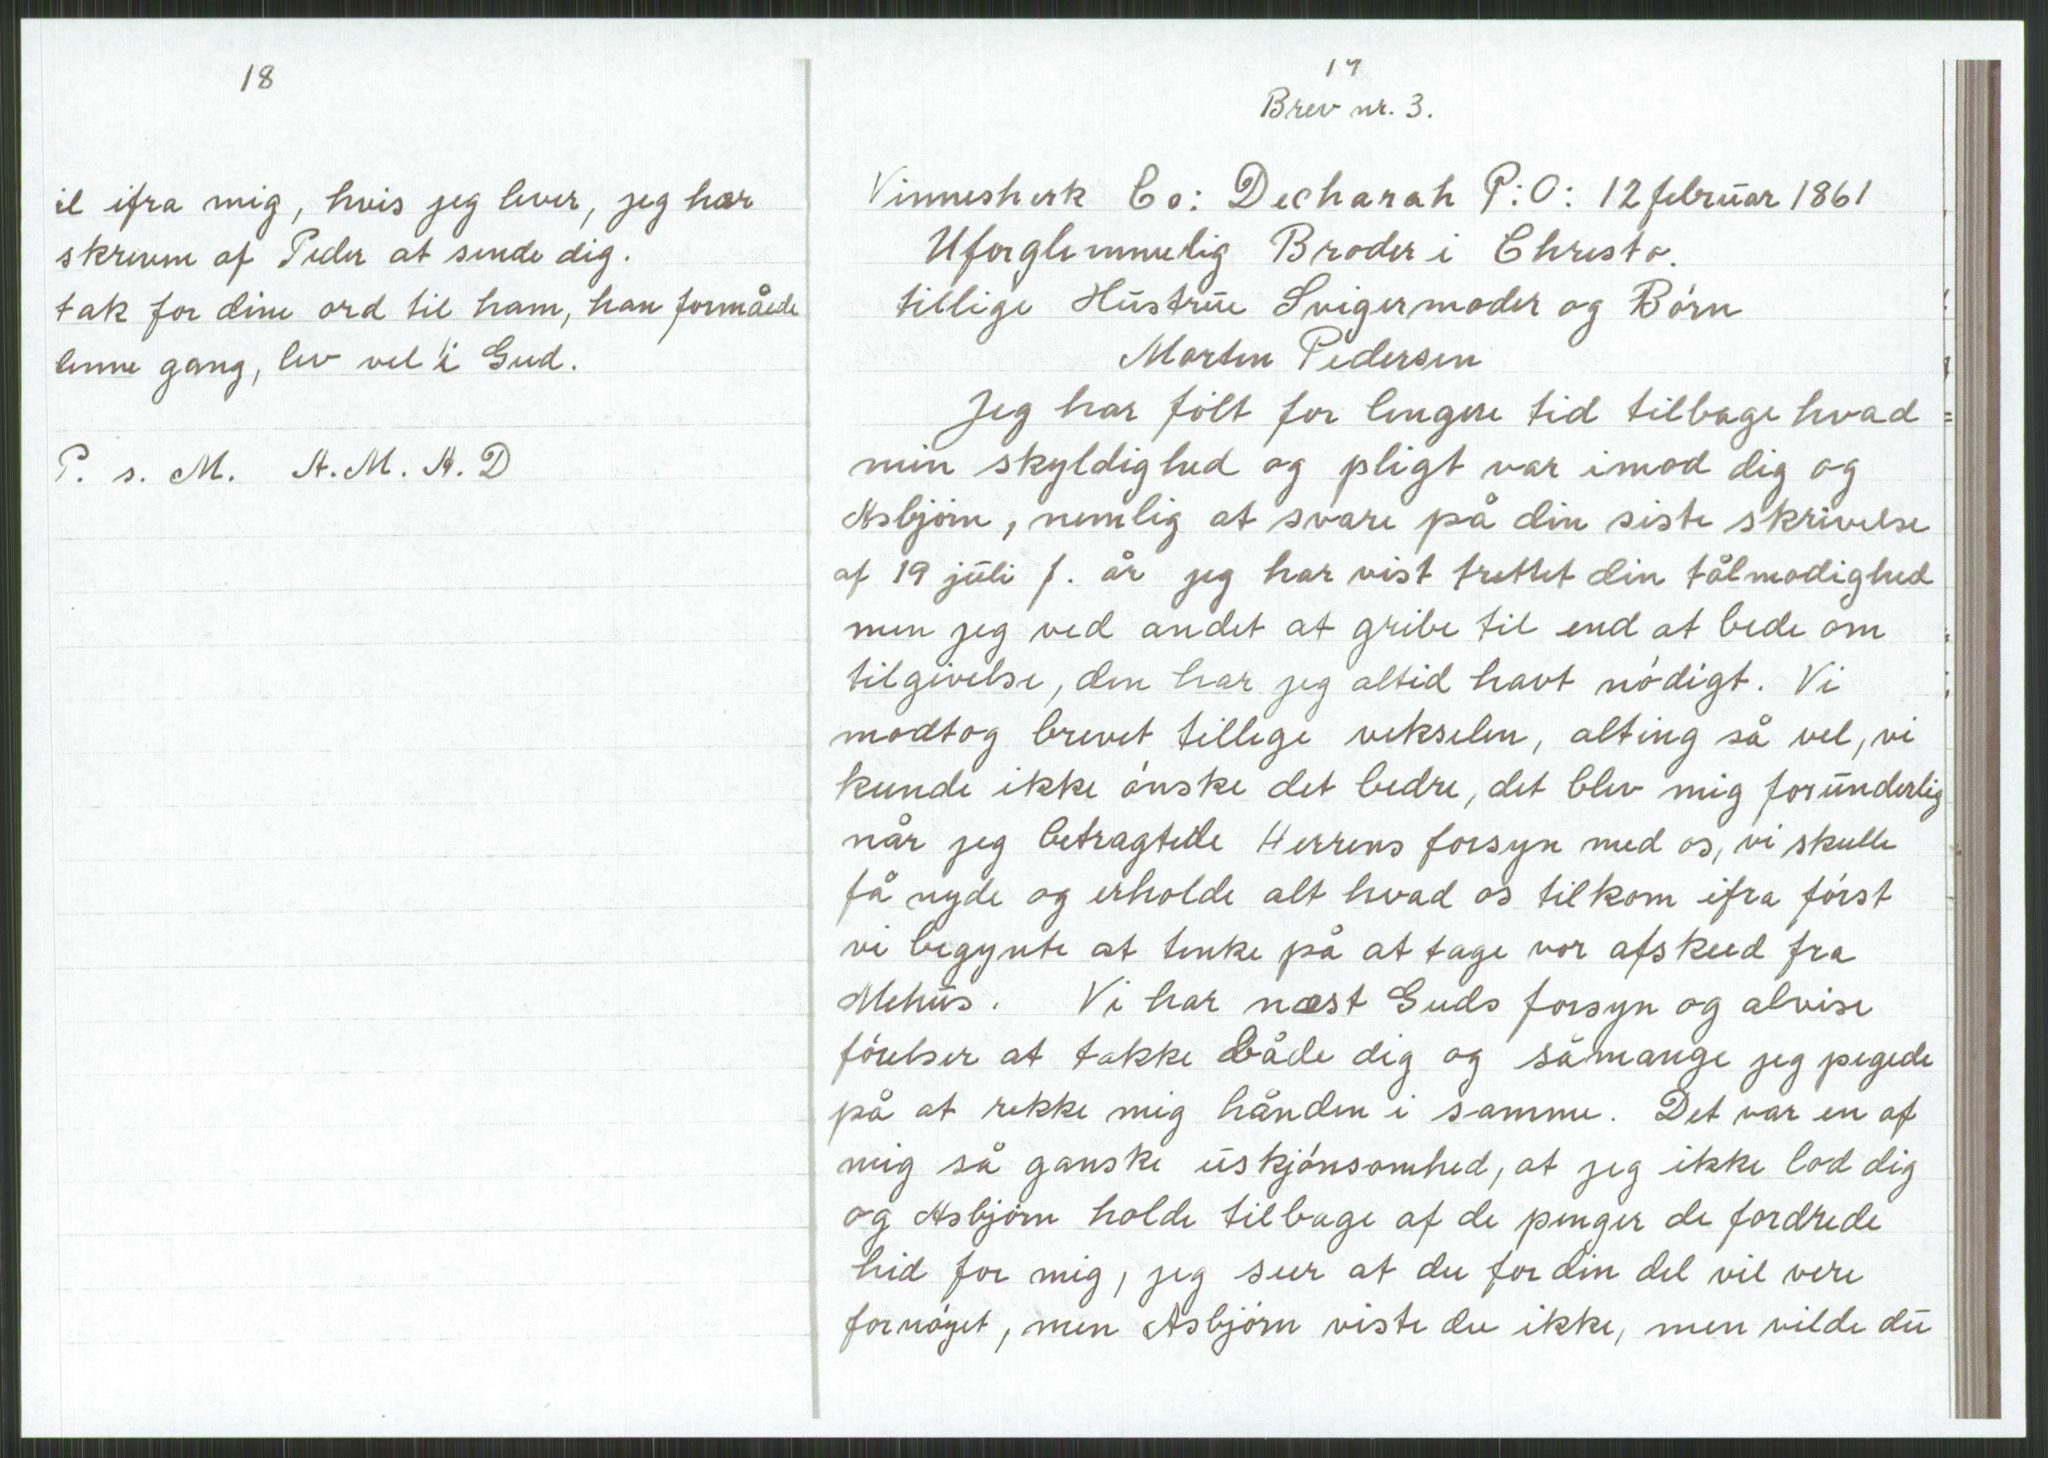 18
il ifra mig, hvis jeg lever, jeg har
skreven af Peder at sende dig.
tak for dine ord til ham, han formåede
enne gang, lev vel i Gud.
P. s. M. A. M. A. D
17
Brev nr. 3.
Vinneshek Co: Decharah P:O: 12 februar 1861
Uforglemmelig Broder i Christo.
tillige Hustrue Svigermoder og Börn
Morten Pedersen
Jeg har fölt for lengere tid tilbage hvad
min skyldighed og pligt var imod dig og
Asbjörn, nemlig at svare på din siste skrivelse
af 19 juli f. år jeg har vist trettet din tålmodighed
men jeg ved andet at gribe til end at bede om
tilgivelse, den har jeg altid havt nödigt. Vi
modtog brevet tillege vekselen, alting så vel, vi
kunde ikke önske det bedre, det blev mig forunderlig
når jeg betragtede Herrens forsyn med os, vi skulle
få nyde og erholde alt hvad os tilkom ifra först
vi begynte at tenke på at tage vor afskeed fra
Mehus. Vi har næst Guds forsyn og alvise
förelser at takke både dig og såmange jeg pegede
på at rekke mig hånden i samme. Det var en af
mig så ganske uskjönsomhed, at jeg ikke lod dig
og Asbjörn holde tilbage af de penger de fordrede
hid for mig, jeg seer at du for din del vil vere
fornöyet, men Asbjörn viste du ikke, men vilde du